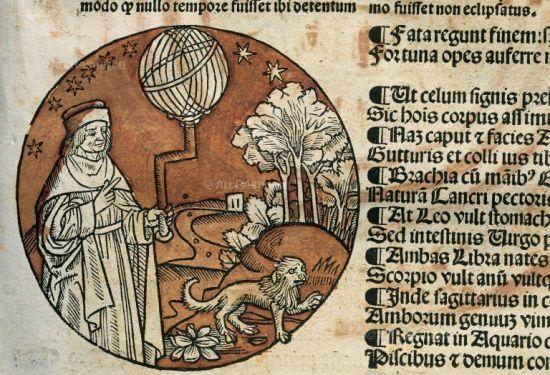 modo qƺ nullo tempore fuisset ibi detentum
mo fuisset non eclipsatus.
¶Fata regunt finem: s
Fortuna opes auferre n
¶Ut celum signis pre
Sic hois corpus assimi
¶Naʒ caput ⁊ facies A
Gutturis et colli ius ti
¶Brachia cū māibꝰ
Naturā Lancri pectori
¶At Leo vult stomach
Sed intestinis Virgo p
¶Ambas Libra nates
Scorpio vult anū vultq
¶Inde sagittarius in c
Amborum genuuʒ vim
¶Regnat in Aquario c
Piscibus ⁊ demum con